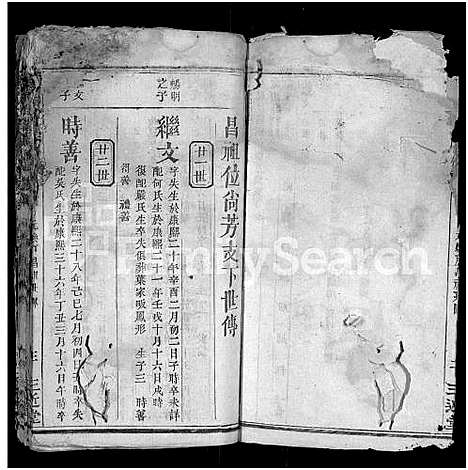 昌祖位尚芳支下世傳
廿一世
賜明
之子
繼文
字失生於康熙二十年辛酉二月初二日子時卒未詳
配何氏生於康熙二十一年壬戌十月十六日戌時
復配嚴氏生卒失俱葬葉家畈鳳形 生子三 時善
禮善
廿二世
文
一子
時善
字失生於康熙二十八年己巳七月初四日子時卒失
配吳氏生於康熙三十六年丁丑三月十六日午時卒
三近堂
FamilySearch